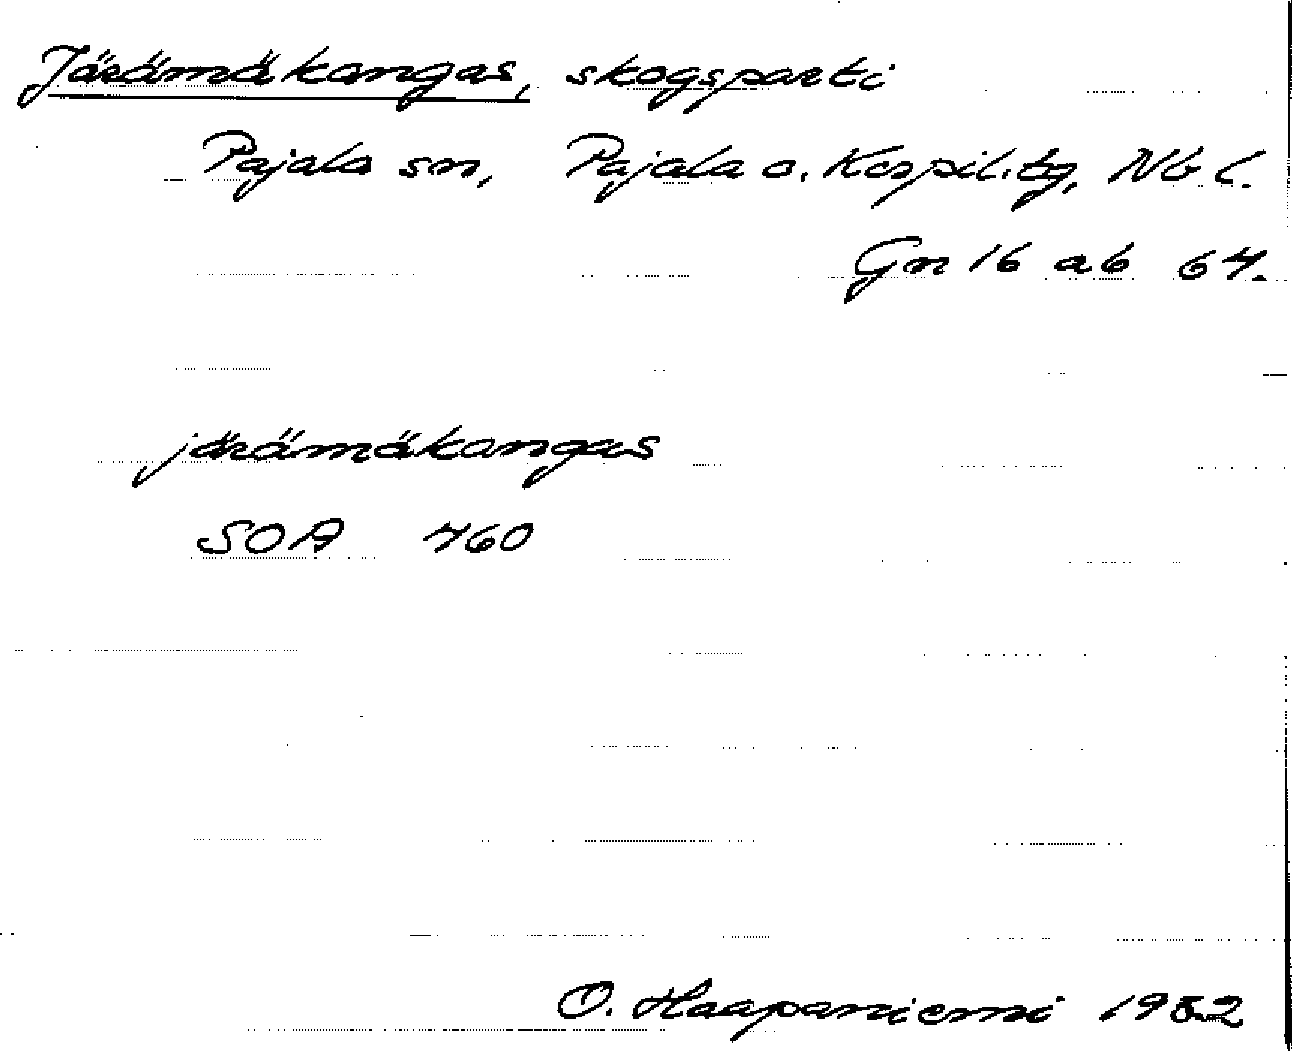 Järämäkangas, skogsparti
Pajala sn, Pajala o. Korpil. tg, Nb l.
Gn 16 ab 64.
järämäkangas
SOA 760
O. Haapaniemi 1982